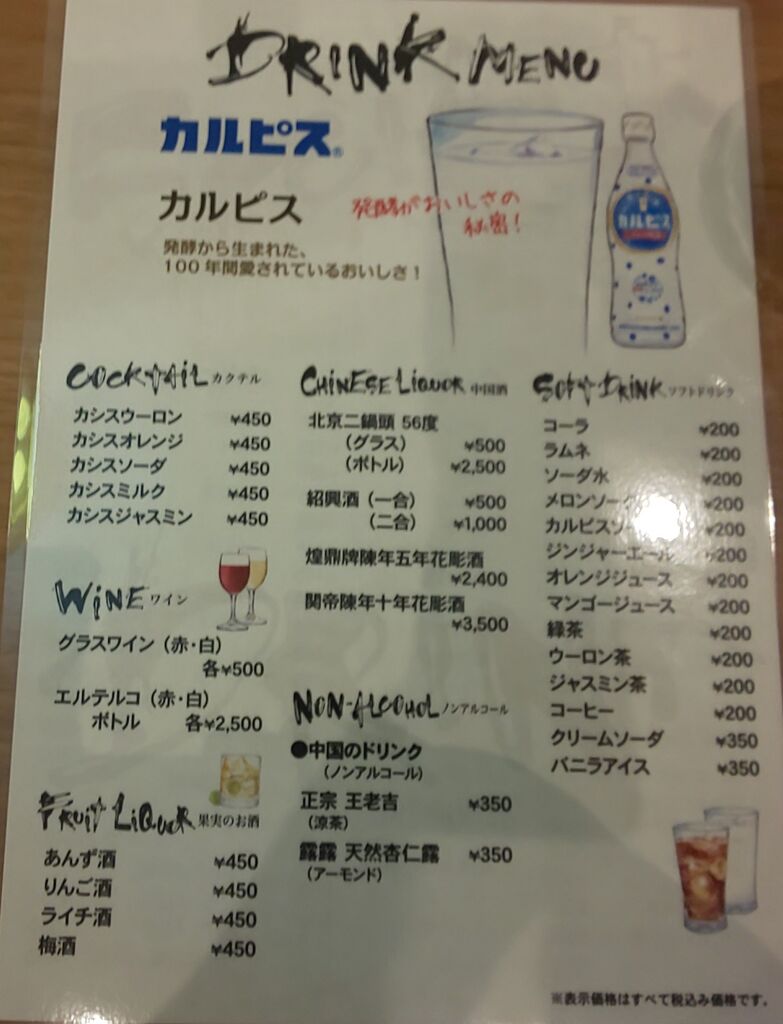 DRINK MENU
カルピス®
カルピス
発酵から生まれた、
100年間愛されているおいしさ！
発酵がおいしさの
秘密！
カルピス
COCKTAIL カクテル
カシスウーロン ¥450
カシスオレンジ ¥450
カシスソーダ ¥450
カシスミルク ¥450
カシスジャスミン ¥450
WINE ワイン
グラスワイン（赤・白）
各¥500
エルテルコ（赤・白）
ボトル 各¥2,500
FRUIT LIQUOR 果実のお酒
あんず酒 ¥450
りんご酒 ¥450
ライチ酒 ¥450
梅酒 ¥450
CHINESE LIQUOR 中国酒
北京二鍋頭 56度
（グラス） ¥500
（ボトル） ¥2,500
紹興酒（一合） ¥500
（二合） ¥1,000
煌鼎牌陳年五年花彫酒
¥2,400
関帝陳年十年花彫酒
¥3,500
NON-ALCOHOL ノンアルコール
●中国のドリンク
（ノンアルコール）
正宗 王老吉 ¥350
（涼茶）
露露 天然杏仁露 ¥350
（アーモンド）
SOFT DRINK ソフトドリンク
コーラ ¥200
ラムネ ¥200
ソーダ水 ¥200
メロンソーダ ¥200
カルピスソーダ ¥200
ジンジャーエール ¥200
オレンジジュース ¥200
マンゴージュース ¥200
緑茶 ¥200
ウーロン茶 ¥200
ジャスミン茶 ¥200
コーヒー ¥200
クリームソーダ ¥350
バニラアイス ¥350
※表示価格はすべて税込み価格です。